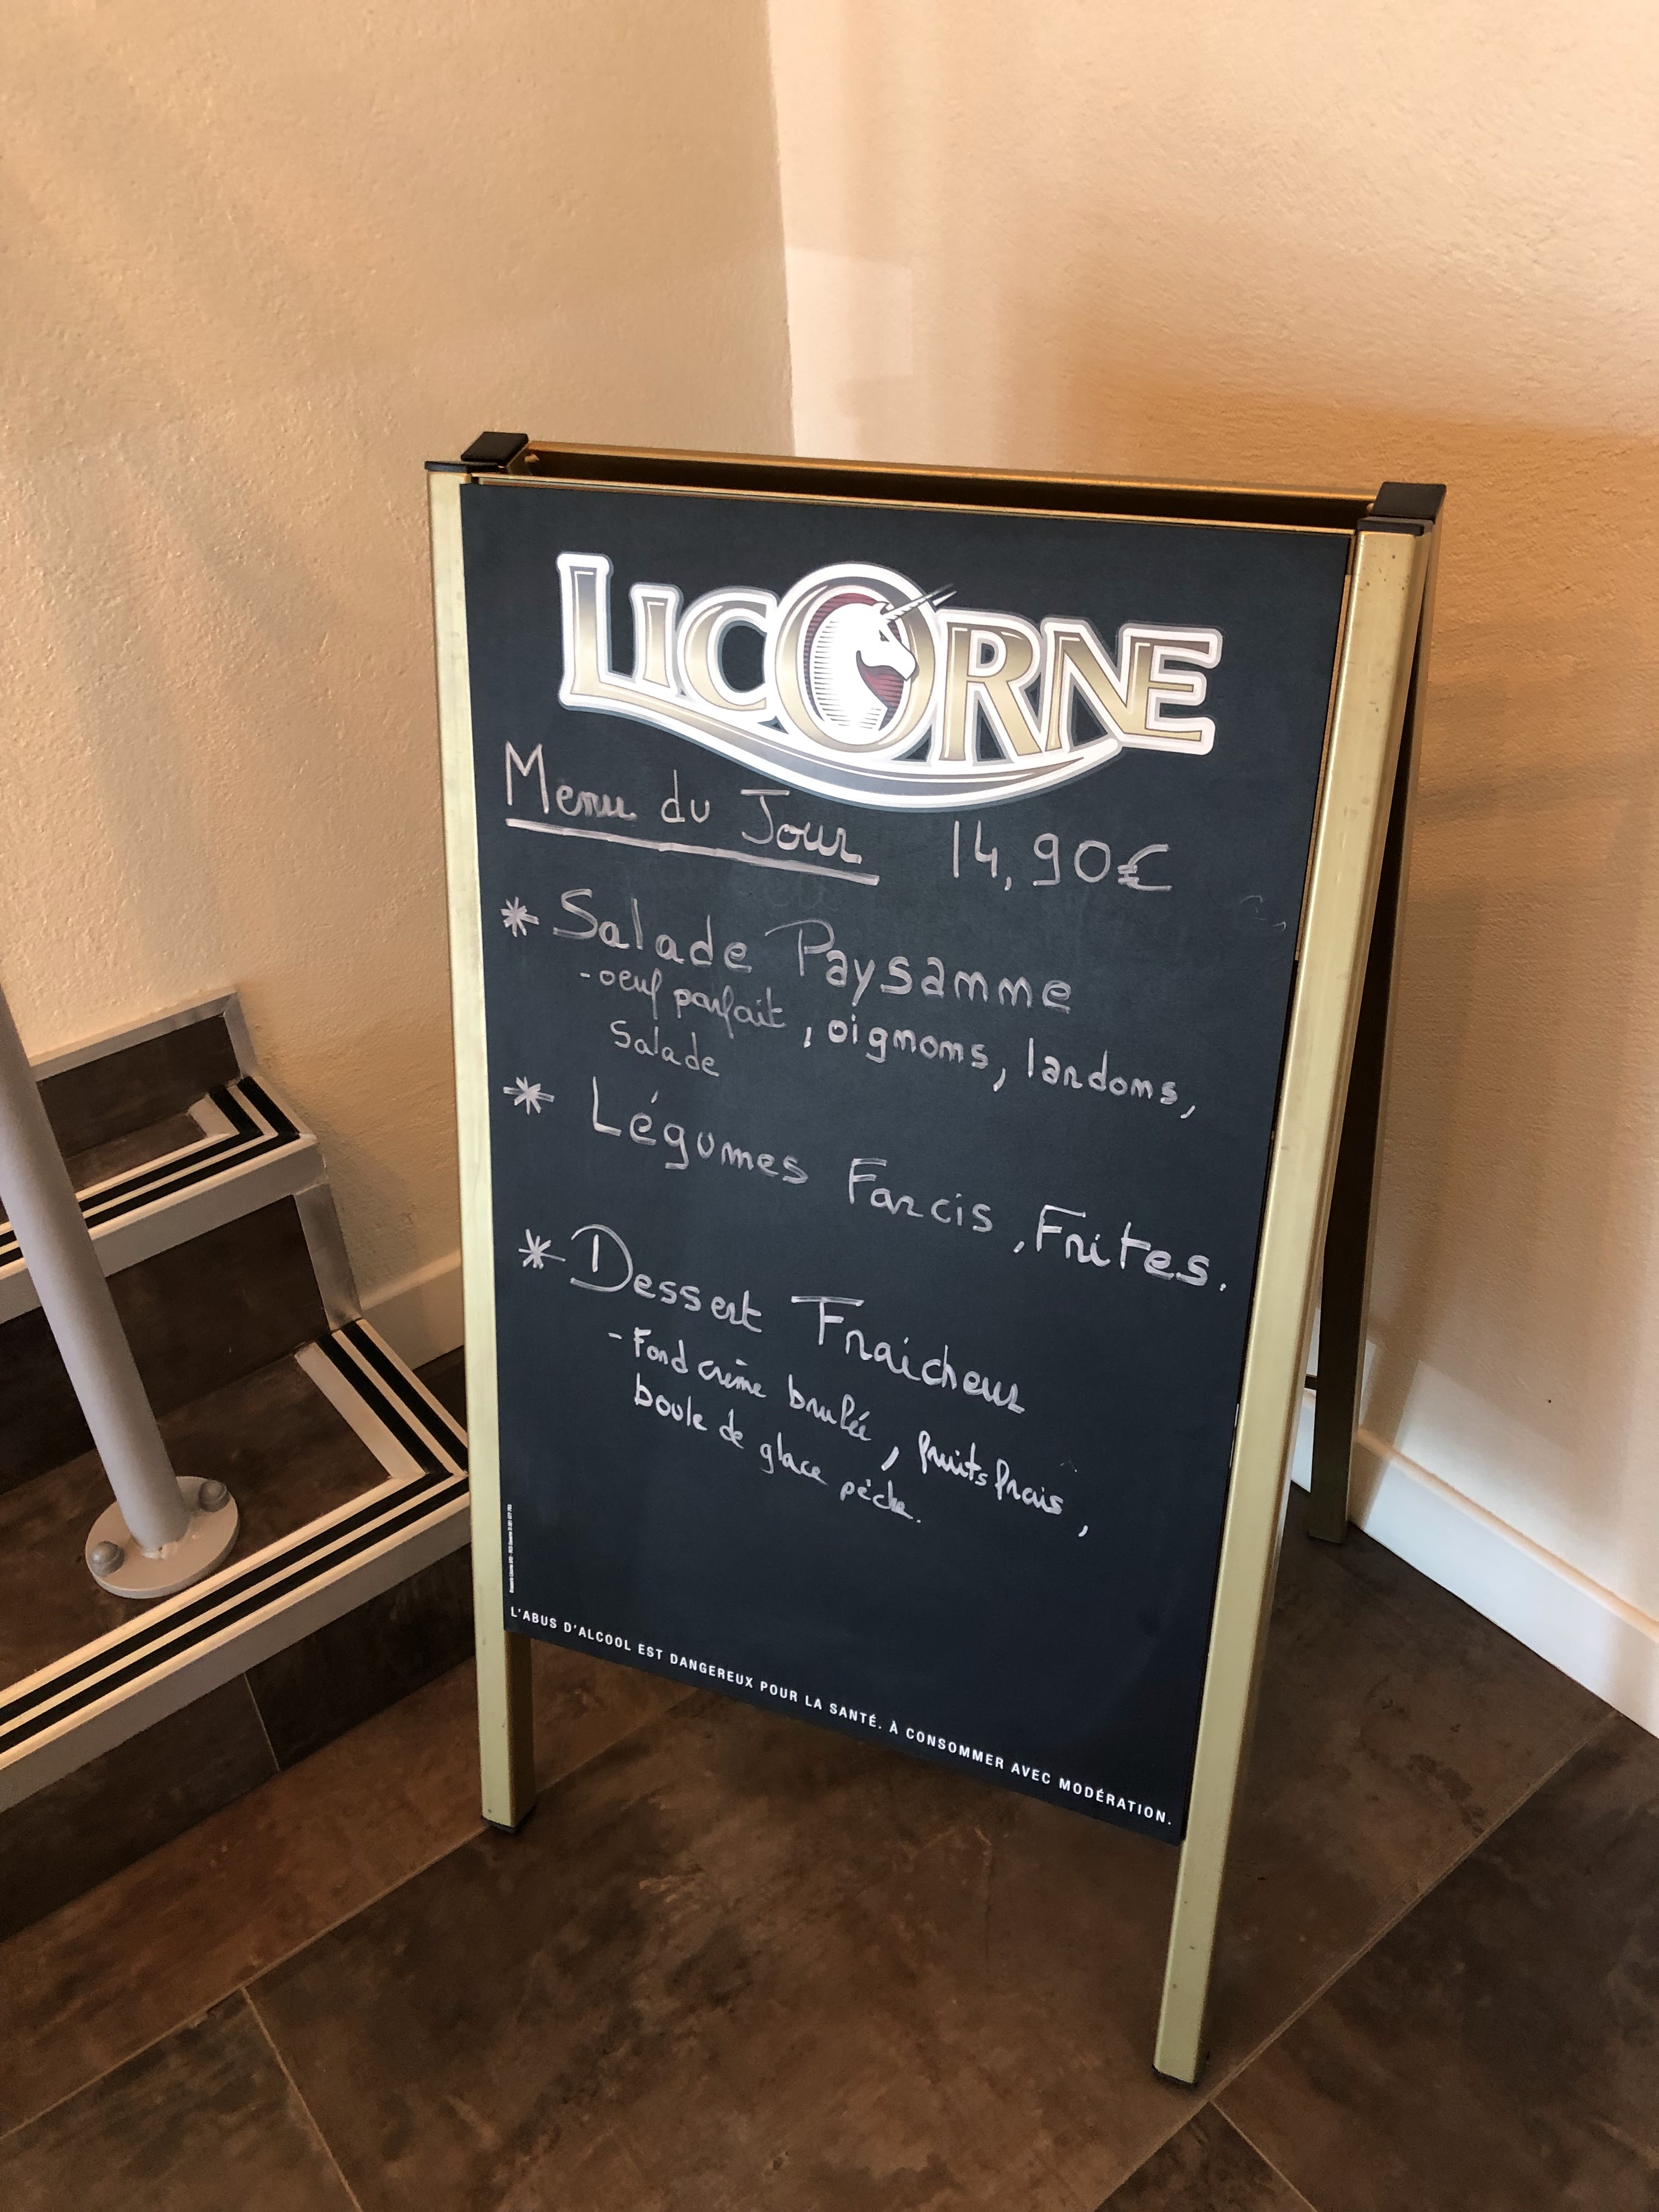 LICORNE
Menu du Jour 14,90€
* Salade Paysanne
- oeuf parfait, oignons, lardons,
Salade
* Légumes Farcis, Frites.
* Dessert Fraicheur
- Fond crème brulée, fruits frais,
boule de glace pêche.
L'ABUS D'ALCOOL EST DANGEREUX POUR LA SANTÉ. À CONSOMMER AVEC MODÉRATION.